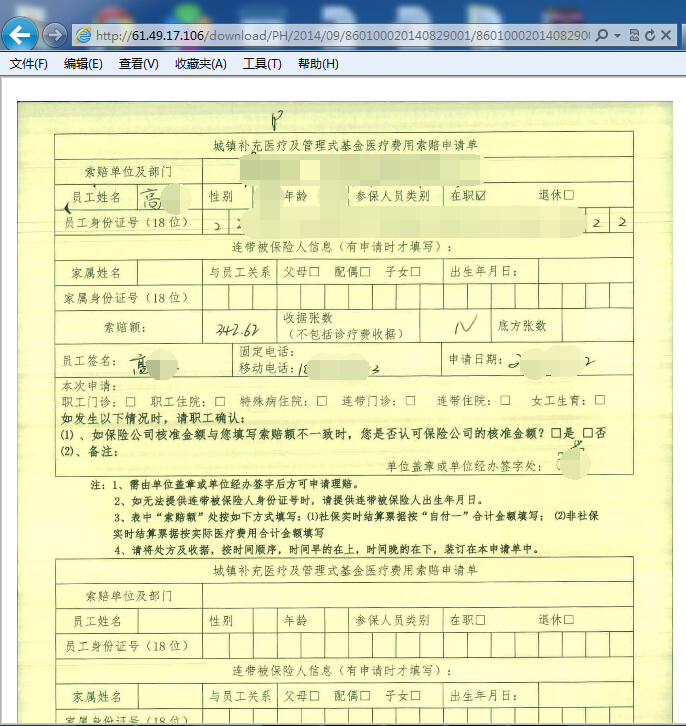 http://61.49.17.106/download/PH/2014/09/860100020140829001/8601000201408290
文件(F) 编辑(E) 查看(V) 收藏夹(A) 工具(T) 帮助(H)
城镇补充医疗及管理式基金医疗费用索赔申请单
索赔单位及部门
员工姓名 高 性别 年龄 参保人员类别 在职☑ 退休□
员工身份证号（18位） 2 2 2
连带被保险人信息（有申请时才填写）：
家属姓名 与员工关系 父母□ 配偶□ 子女□ 出生年月日：
家属身份证号（18位）
索赔额： 342.62 收据张数 底方张数
（不包括诊疗费收据）
员工签名： 高 固定电话： 申请日期： 2 2
移动电话：18 3
本次申请：
职工门诊：□ 职工住院：□ 特殊病住院：□ 连带门诊：□ 连带住院：□ 女工生育：□
如发生以下情况时，请职工确认：
⑴、如保险公司核准金额与您填写索赔额不一致时，您是否认可保险公司的核准金额？□是 □否
⑵、备注：
单位盖章或单位经办签字处：
注：1、需由单位盖章或单位经办签字后方可申请理赔。
2、如无法提供连带被保险人身份证号时，请提供连带被保险人出生年月日。
3、表中“索赔额”处按如下方式填写：⑴社保实时结算票据按“自付一”合计金额填写；⑵非社保
实时结算票据按实际医疗费用合计金额填写
4、请将处方及收据，按时间顺序，时间早的在上，时间晚的在下，装订在本申请单中。
城镇补充医疗及管理式基金医疗费用索赔申请单
索赔单位及部门
员工姓名 性别 年龄 参保人员类别 在职□ 退休□
员工身份证号（18位）
连带被保险人信息（有申请时才填写）：
家属姓名 与员工关系 父母□ 配偶□ 子女□ 出生年月日：
家属身份证号（18位）